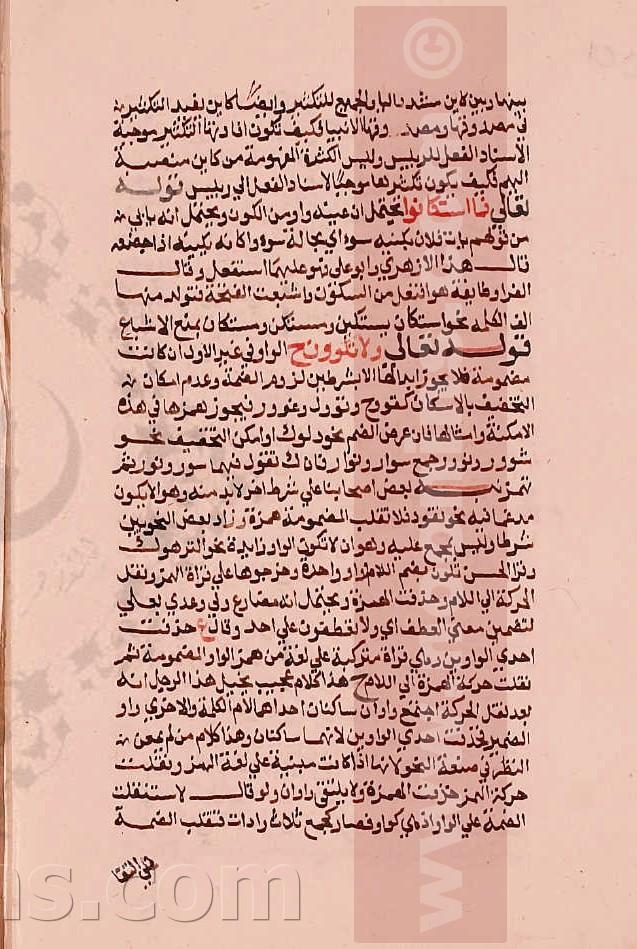 بينها وبين لابن منتقد بالبا والجميع للتكثير وايضا كاين يفيد التكثير
في مصدرونها ومصد وفيها الانبيا فكيف تكون افادتها التكثير موجبة
لاسناد الفعل للربيين وليس الكثرة المفهومة من كاين منصبة
اليهم فكيف يكون تكثيرها موجبا لاسناد الفعل الى ربيين قوله
تعالى فما استكانوا يحتمل ان عينه واو من الكون ويحتمل انه ياى
من قولهم بات فلان بكينه سوء اي بحالة سوء واكانه يكينه اذا اخضعه
قال هذا الازهري وابو علي فهو عليهما استفعل وقال
الفرا وطايفة هو افتعل من السكون واشبعت الفتحة فتولد منها
الف الكلمة نحو استكان يستكين ومستكين ومستكان يمنع الاشباع
قوله تعالى ولا تلوون ح الواو في غير الاول ان كانت
مضمومة فلا يجوز ابدالها الا بشرطين لزوم الضمة وعدم امكان
التخفيف بالاسكان كقووح وقوول وغوور فيجوز همزها في هذه
الامكنة وامثالها فان عرض الضم نحو دلوك او امكن التخفيف نحو
سوور ونوور جمع سوار ونوار فانك تقول فيهما سور ونور لم
تهمز بعض اصحابنا على شرط اخر لابد منه وهو الا يكون
مدغما فيه نحو تقود فلا تقلب المضمومة همزة وزاد بعض النحويين
شرطا وليس بمجمع عليه وهو ان لا تكون الواو زايدة نحو الترهوك
وقرا الحسن تلون بضم اللام وواو واحدة وخرجوها على قراة الهمز ونقل
الحركة الى اللام وحذفت الهمزة ويحتمل انه مضارع ولي وعدي بعلى
لتضمين معنى العطف اي ولا تعطفون على احد وقال ع حذفت
احدى الواوين وهي قراة متركبة على لغة من همز الواو المضمومة ثم
نقلت حركة الهمزة الى اللام ح هذا كلام عجيب يخيل هذا الرجل انه
بعد نقل الحركة اجتمع واوان ساكنان احداهما لام الكلمة والاخرى واو
الضمير فحذفت احدى الواوين لانهما ساكنان وهذا كلام من لم يمعن
النظر في صنعة النحو لانها اذا كانت مبنية على لغة الهمز ونقلت
حركة الهمز حذفت الهمزة ولا يلتقي واوان ولو قال استثقلت
الضمة على الواو اذ هي كواو فصار كجمع ثلاث واوات فتقلب الضمة